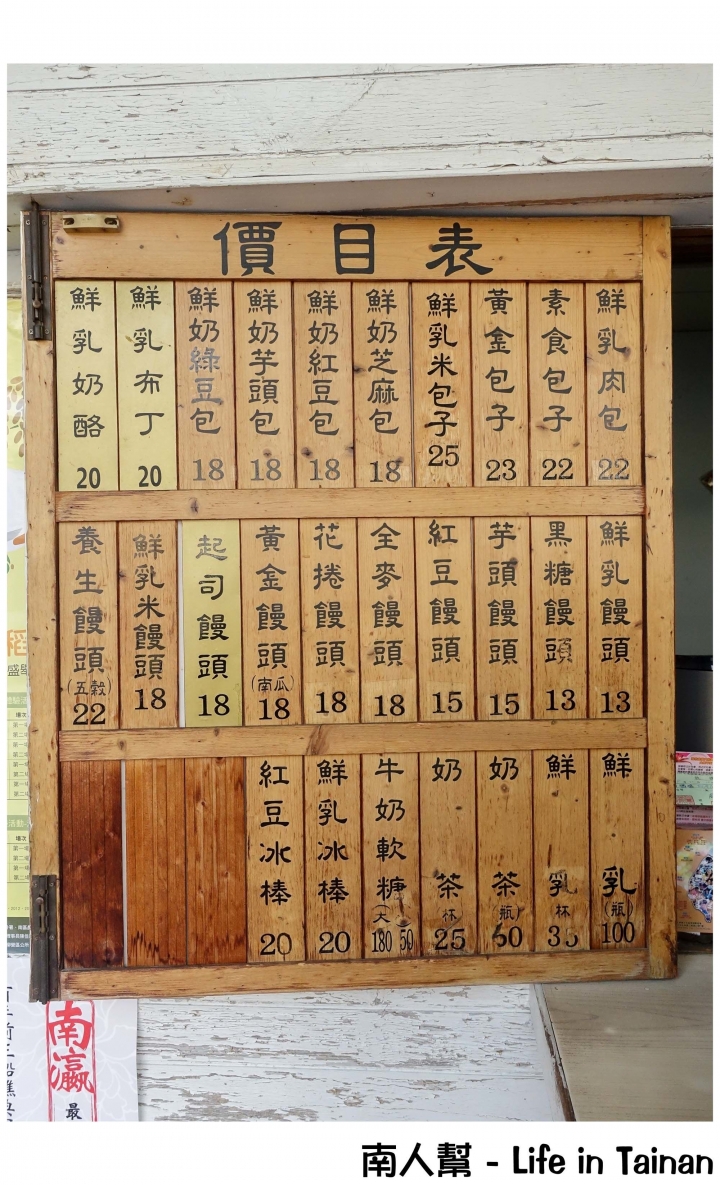 價目表
鮮乳肉包 22
素食包子 22
黃金包子 23
鮮乳米包子 25
鮮奶芝麻包 18
鮮奶紅豆包 18
鮮奶芋頭包 18
鮮奶綠豆包 18
鮮乳布丁 20
鮮乳奶酪 20
鮮乳饅頭 13
黑糖饅頭 13
芋頭饅頭 15
紅豆饅頭 15
全麥饅頭 18
花捲饅頭 18
黃金饅頭(南瓜) 18
起司饅頭 18
鮮乳米饅頭 18
養生饅頭(五穀) 22
鮮乳(瓶) 100
鮮乳(杯) 35
奶茶(瓶) 60
奶茶(杯) 25
牛奶軟糖(大 180 50
鮮乳冰棒 20
紅豆冰棒 20
南瀛
最
南人幫 - Life in Tainan